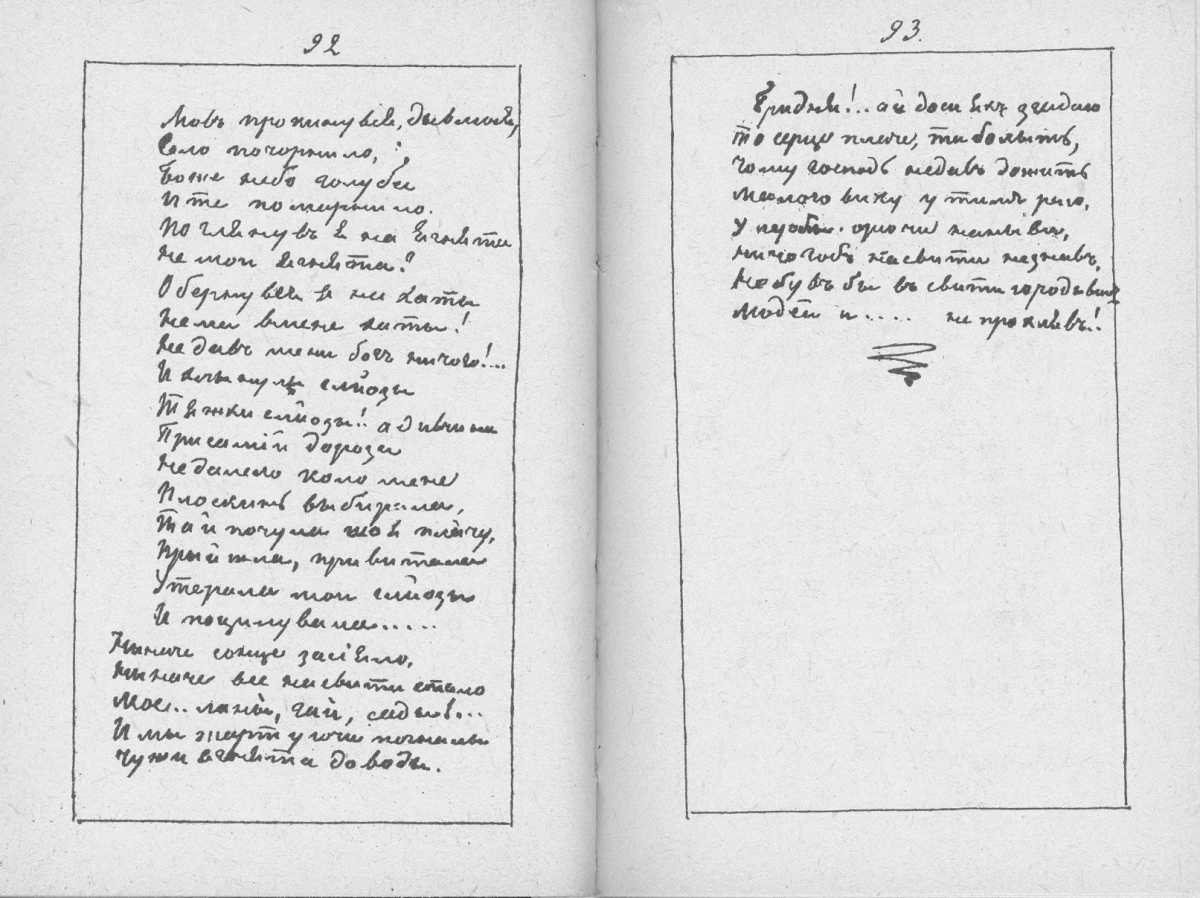 92
Мовъ прокинувся, дывлюся,
Село почорнило,
Боже небо голубе
И те помарнило.
Поглянувъ я на ягнята
Не мои ягнята!
Обернувся я на хаты
Нема вмене хаты!
Недавъ мени богъ ничого!...
И хлынулы слйозы
Тяжки слйозы!.. а дивчина
Присамій дорози
Недалеко коло мене
Плоскинь выбирала,
Тай почула що я плачу,
Прыйшла, привитала
Утерала мои слйозы
И поцилувала.....
Ниначе сонце засіяло,
Ниначе все насвити стало
Мое.. ланы, гаи, сады!...
И мы жартуючи погналы
Чужи ягнята доводы.
93.
Бридня!.. а й доси якъ згадаю
То серце плаче, та болыть,
Чому господь недавъ дожить
Малого вику у тимъ раю.
Умеръ бы. орючи наныви,
Ничогобъ насвити незнавъ,
Небувъ бы въ свити юродывымъ
Людей и .... не проклявъ!.